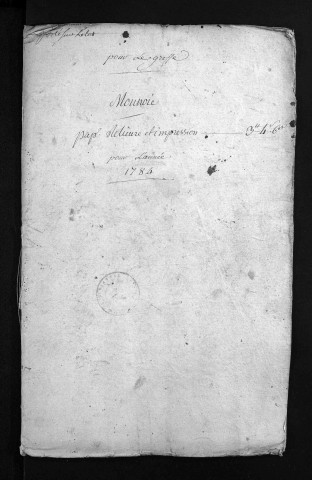 pour Le greffe
Monnoie
pap. Relieure et impression 3# 4s 6d
pour L'année
1785